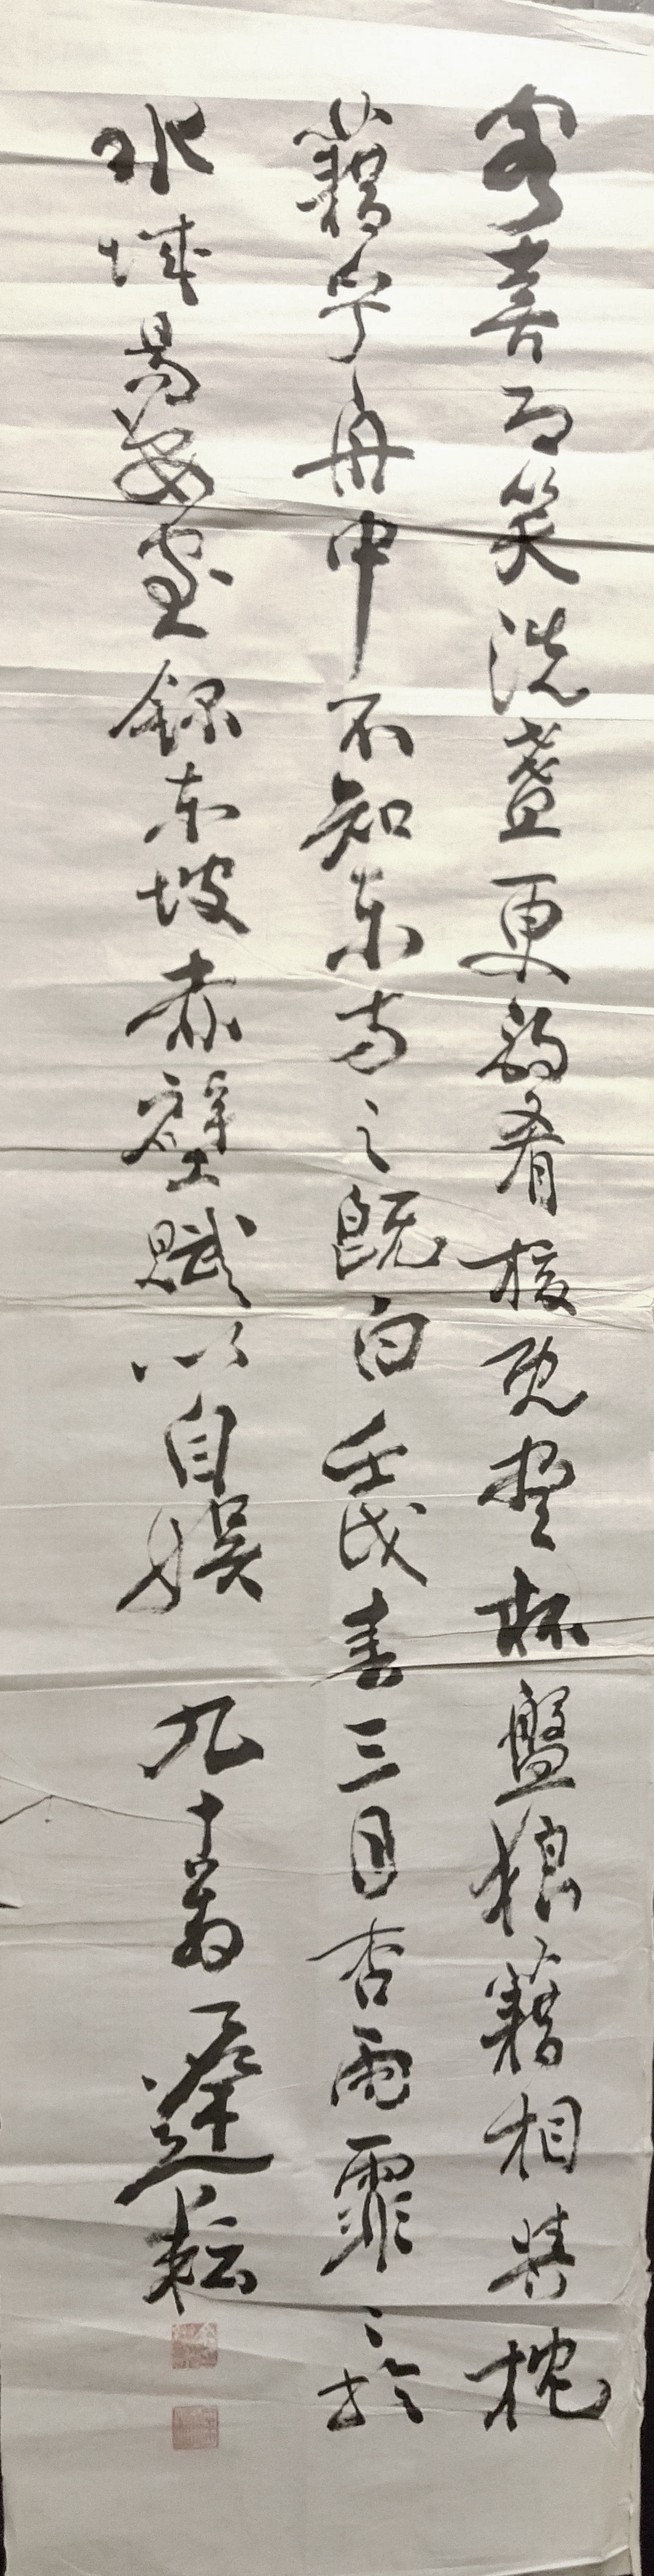 客喜而笑洗盞更酌肴核既盡杯盤狼藉相與枕
藉乎舟中不知東方之既白壬戌春三月杏雨霏〻於
水城易安室錄東坡赤壁賦以自娛 九十翁 耘